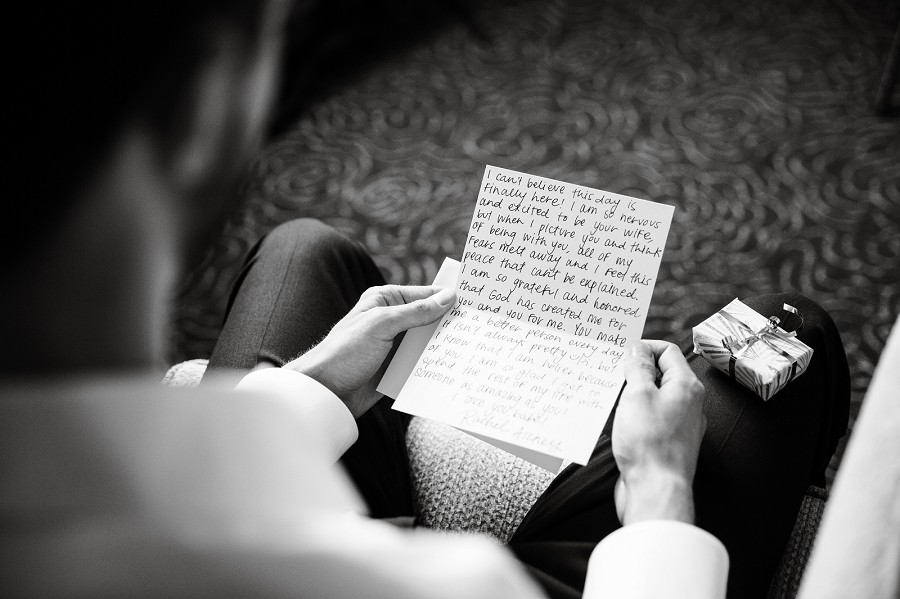 I can't believe this day is
Finally here! I am so nervous
and excited to be your wife,
but when I picture you and think
of being with you, all of my
Fears melt away and I feel this
peace that can't be explained.
I am so grateful and honored
that God has created me for
you and you for me. You make
me a better person every day
it isn't always pretty, but
I know that I am better because
of you. I am so glad I get to
spend the rest of my life with
someone as amazing as you!
I love you babe!
Rachel